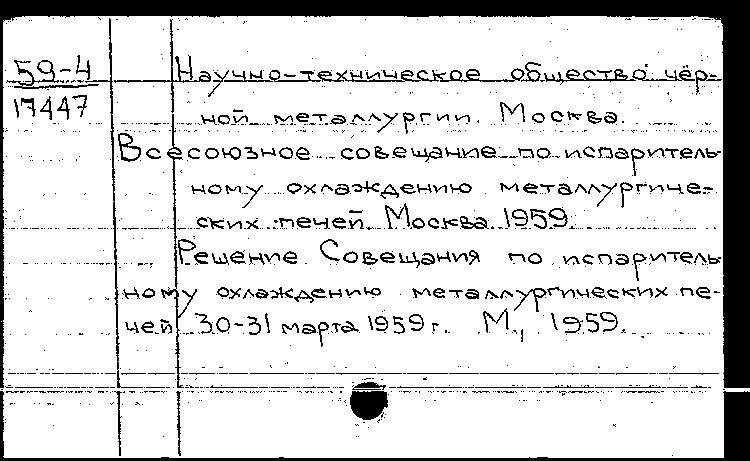 59-4
17447
Научно-техническое общество чёр-
ной металлургии. Москва.
Всесоюзное совещание по испаритель-
ному охлаждению металлургиче-
ских печей. Москва 1959.
Решение Совещания по испаритель-
ному охлаждению металлургических пе-
чей 30-31 марта 1959 г. М., 1959.